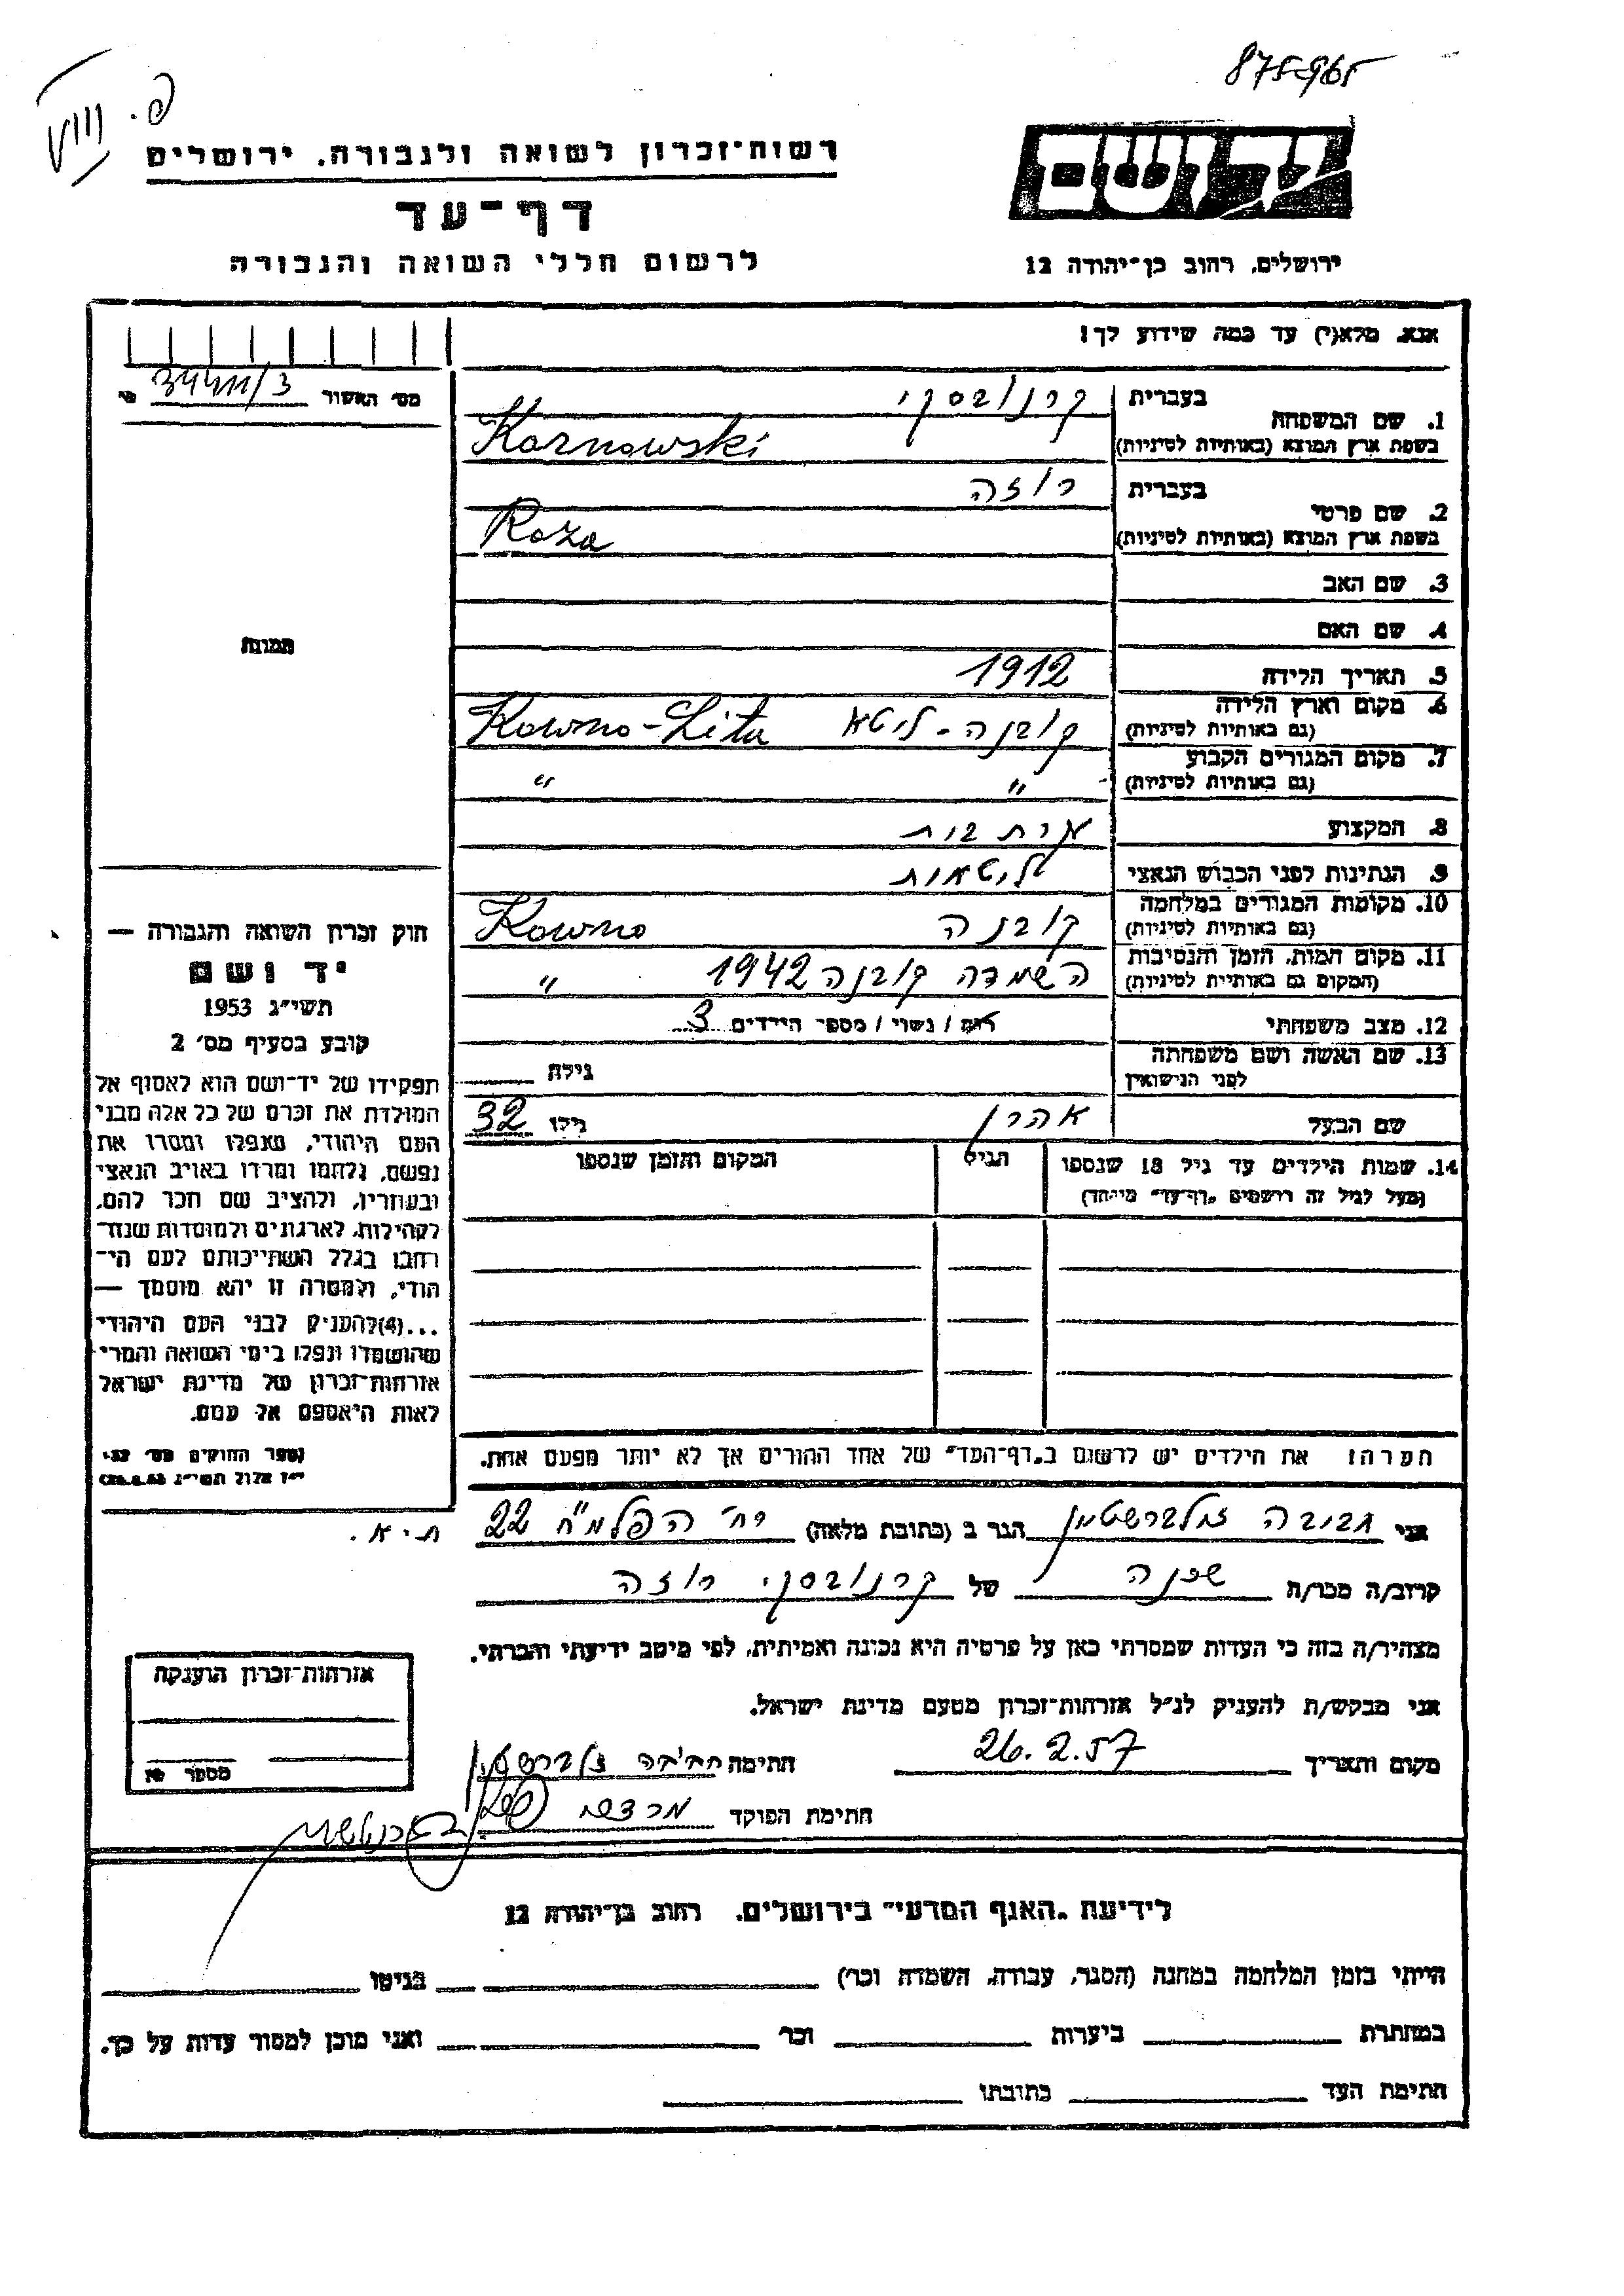 875-965
פ. VIII
יד ושם
רשות־זכרון לשואה ולגבורה, ירושלים
דף־עד
לרשום חללי השואה והגבורה
ירושלים, רחוב בן־יהודה 12
אנא, מלא(י) עד כמה שידוע לך!
מס׳ האשור 34411/3
1. שם המשפחה
בעברית קרנובסקי
בשפת ארץ המוצא (באותיות לטיניות) Karnowski
2. שם פרטי
בעברית רוזה
בשפת ארץ המוצא (באותיות לטיניות) Roza
3. שם האב
4. שם האם
5. תאריך הלידה 1912
6. מקום וארץ הלידה קובנה - ליטא Kowno-Lita
(גם באותיות לטיניות)
7. מקום המגורים הקבוע " "
(גם באותיות לטיניות)
8. המקצוע עקרת בית
9. הנתינות לפני הכבוש הנאצי ליטאית
10. מקומות המגורים במלחמה קובנה Kowno
(גם באותיות לטיניות)
11. מקום המות, הזמן והנסיבות השמדה קובנה 1942 "
(המקום גם באותיות לטיניות)
12. מצב משפחתי רוק / נשוי / מספר הילדים 3
13. שם האשה ושם משפחתה
לפני הנישואין גילה
שם הבעל אהרן גילו 32
14. שמות הילדים עד גיל 18 שנספו
(מעל לגיל זה רושמים "דף־עד" מיוחד)
הגיל
המקום והזמן שנספו
הערה: את הילדים יש לרשום ב"דף־העד" של אחד ההורים אך לא יותר מפעם אחת.
תמונה
חוק זכרון השואה והגבורה —
יד ושם
תשי"ג 1953
קובע בסעיף מס׳ 2
תפקידו של יד־ושם הוא לאסוף אל
המולדת את זכרם של כל אלה מבני
העם היהודי, שנפלו ומסרו את
נפשם, נלחמו ומרדו באויב הנאצי
ובעוזריו, ולהציב שם וזכר להם,
לקהילות, לארגונים ולמוסדות שנח־
רבו בגלל השתייכותם לעם הי־
הודי, ולמטרה זו יהא מוסמך —
...(4) להעניק לבני העם היהודי
שהושמדו ונפלו בימי השואה והמרי
אזרחות־זכרון של מדינת ישראל
לאות היאספם אל עמם.
אני הגר ב (כתובת מלאה) רח׳ הפלמ"ח 22 ת"א.
קרוב/ה מכר/ה שכנה של קרנובסקי רוזה
מצהיר/ה בזה כי העדות שמסרתי כאן על פרטיה היא נכונה ואמיתית, לפי מיטב ידיעתי והכרתי.
אני מבקש/ת להעניק לנ"ל אזרחות־זכרון מטעם מדינת ישראל.
מקום ותאריך 26.2.57 חתימה
חתימת הפוקד
אזרחות־זכרון הוענקה
מספר
לידיעת "האגף המדעי" בירושלים, רחוב בן־יהודה 12
הייתי בזמן המלחמה במחנה (הסגר, עבודה, השמדה וכר) בגיטו
במחתרת ביערות וכר ואני מוכן למסור עדות על כך.
חתימת העד כתובתו